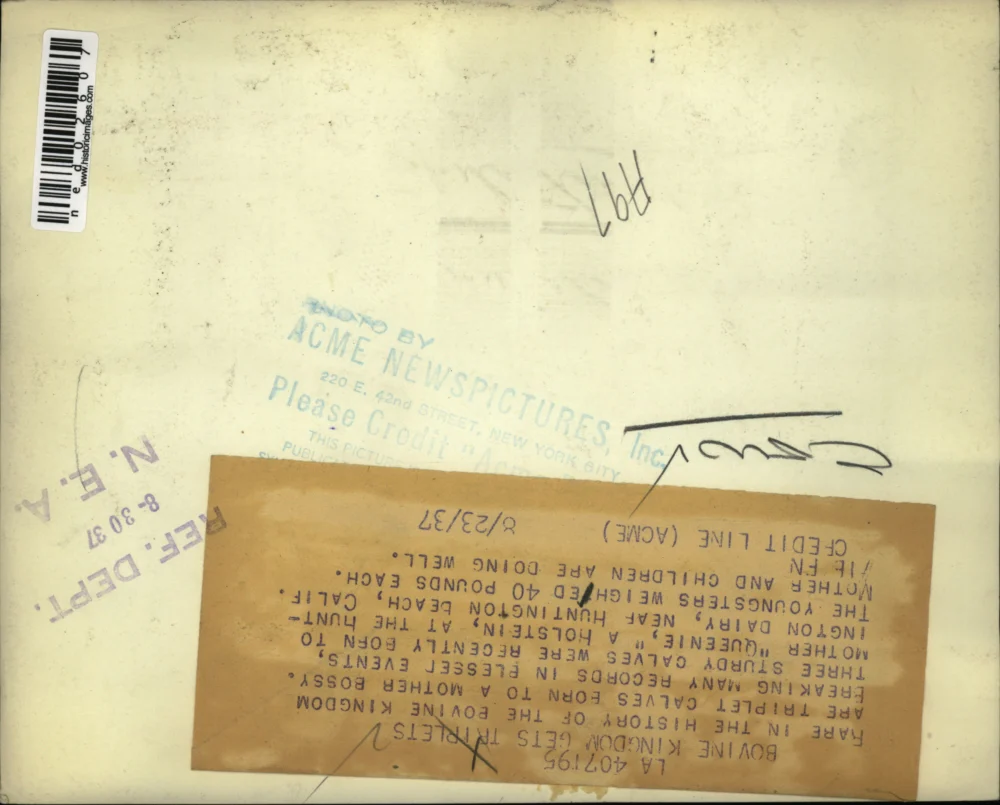 n e d 0 2 6 0 7
www.historicimages.com
H97
PHOTO BY
ACME NEWSPICTURES, Inc.
220 E. 42nd STREET, NEW YORK CITY
Please Credit "Acme
THIS PICTURE
PUBLIC
Cows
REF. DEPT.
8-30 37
N. E. A.
LA 407195
BOVINE KINGDOM GETS TRIPLETS
RARE IN THE HISTORY OF THE BOVINE KINGDOM
ARE TRIPLET CALVES BORN TO A MOTHER BOSSY.
BREAKING MANY RECORDS IN BLESSED EVENTS,
THREE STURDY CALVES WERE RECENTLY BORN TO
MOTHER "QUEENIE," A HOLSTEIN, AT THE HUNT-
INGTON DAIRY, NEAR HUNTINGTON BEACH, CALIF.
THE YOUNGSTERS WEIGHED 40 POUNDS EACH.
MOTHER AND CHILDREN ARE DOING WELL.
CREDIT LINE (ACME) 8/23/37